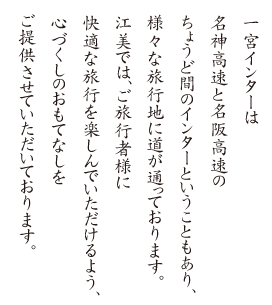 一宮インターは
名神高速と名阪高速の
ちょうど間のインターということもあり、
様々な旅行地に道が通っております。
江美では、ご旅行者様に
快適な旅行を楽しんでいただけるよう、
心づくしのおもてなしを
ご提供させていただいております。